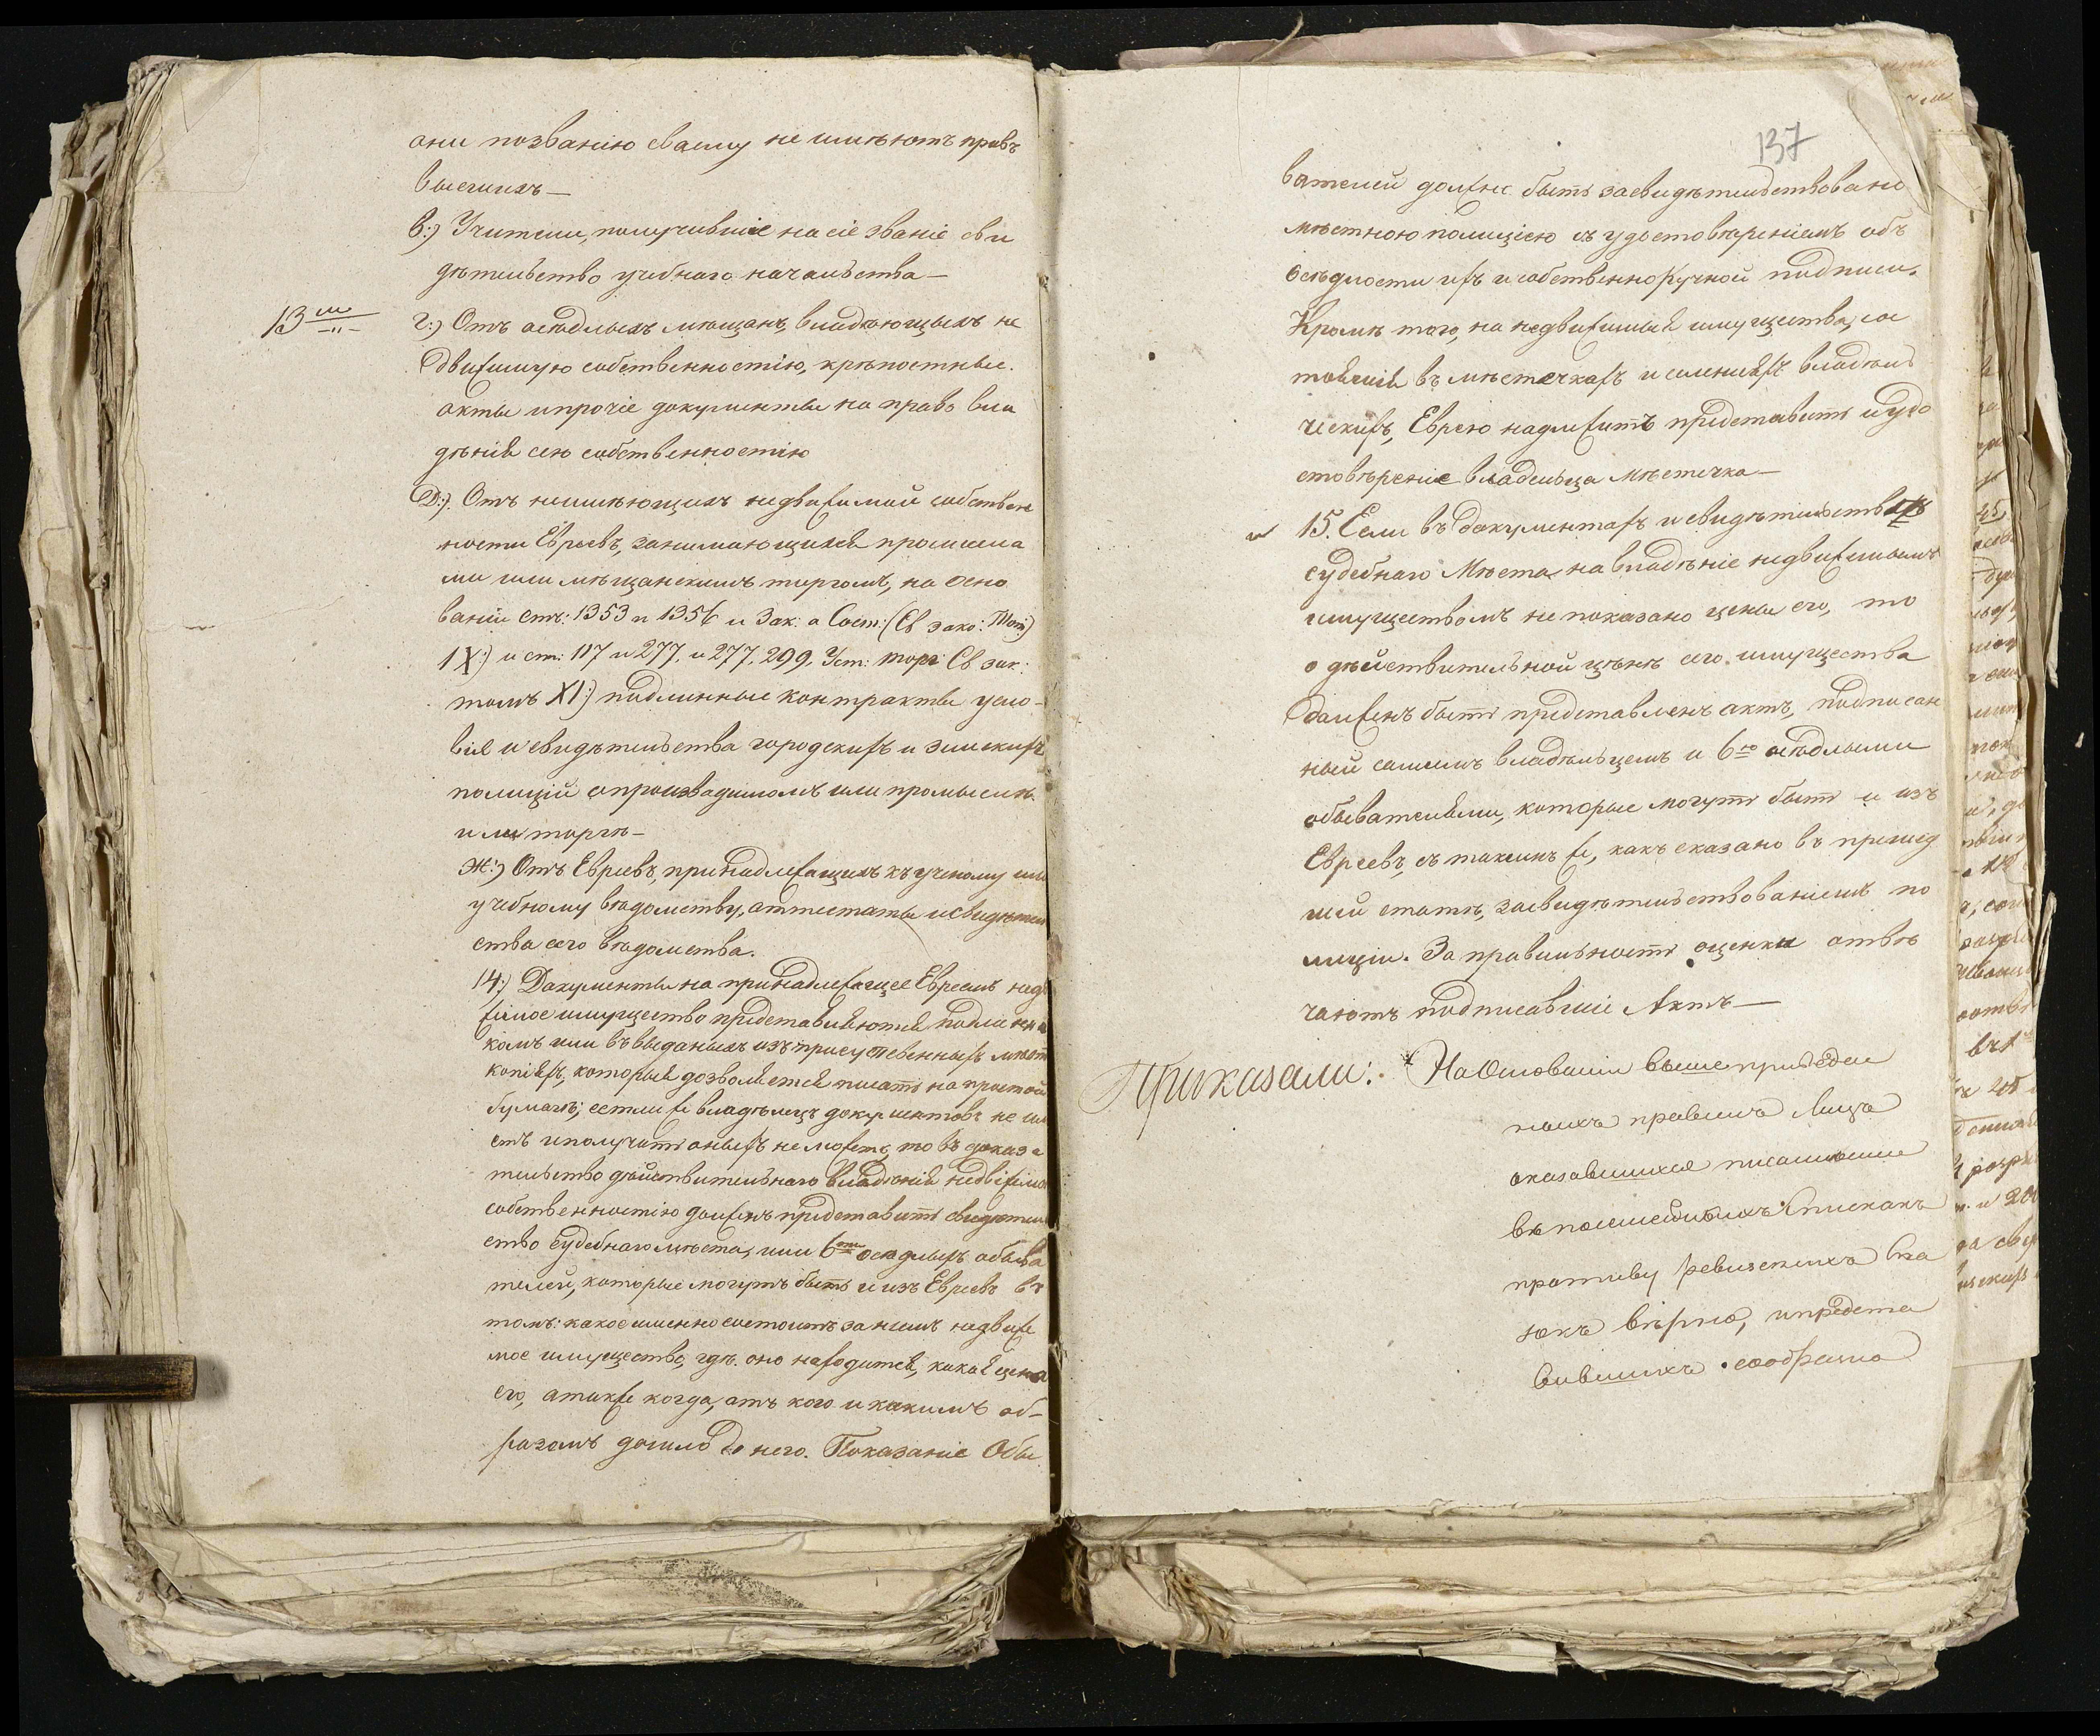 они по званію своему не имѣютъ правъ
высшихъ —
в:) Учители, получившіе на сіе званіе сви
дѣтельство учебнаго начальства —
13
г:) Отъ осѣдлыхъ мѣщанъ, владѣющихъ не
движимую собственностію, крѣпостные
акты и прочіе документы на право вла
дѣнія сею собственностію
Д:) Отъ неимѣющихъ недвижимой собствен
ности Евреевъ, занимающихся промысла
ми или мѣщанскимъ торгомъ, на осно
ваніи ст: 1353 и 1356 и Зак: о Сост: (Св зако: Том)
IX:) и ст: 117 и 277, и 277, 299, Уст: торг: Св зак:
томъ XI:) подлинные контракты усло-
вія и свидѣтельства городскихъ и земскихъ
полицій о производимомъ или промыслѣ
или торгѣ —
Ж:) Отъ Евреевъ, принадлежащихъ къ ученому или
учебному вѣдомству, аттестаты и свидѣтель
ства сего вѣдомства.
14:) Документы на принадлежащее Евреямъ недви
жимое имущество представляются подлинни
комъ или въ выданыхъ изъ присутственныхъ мѣстъ
копіяхъ, которыя дозволяется писать на простой
бумагѣ; естли же владѣлецъ документовъ не им
етъ и получить оныхъ не можетъ, то въ доказа
тельство дѣйствительнаго владѣнія недвижимо
собственностію долженъ представить свидѣтель
ство судебнаго мѣста, или 6 осѣдлыхъ обыва
телей, которые могутъ быть и изъ Евреевъ въ
томъ: какое именно состоитъ за нимъ недвижи
мое имущество, гдѣ оно находится, какая цена
его, а также когда, отъ кого и какимъ об-
разомъ дошло до него. Показаніе Обы
137
вателей должно быть засвидѣтельствовано
мѣстною полиціею съ удостовѣреніемъ объ
осѣдлости ихъ и собственноручной подписи.
Кромѣ того, на недвижимыя имущества, сос
тоящія въ мѣстечкахъ и селеніяхъ владѣль
ческихъ, Еврею надлежитъ представить и удо
стовѣреніе владельца мѣстечка —
15. Если въ документахъ и свидѣтельствахъ
судебнаго Мѣста на владѣніе недвижимымъ
имуществомъ не показано цены его, то
о дѣйствительной цѣнѣ сего имущества
долженъ быть представленъ актъ, подписан
ный самимъ владѣльцемъ и 6ю осѣдлыми
обывателями, которые могутъ быть и изъ
Евреевъ, съ такимъ же, какъ сказано въ прешед
шей статѣ, засвидѣтельствованіемъ по
лиціи. За правильность оценки отвѣ
чаютъ подписавшіе Актъ —
Приказали: На Основаніи вышеприведен
ныхъ правилъ Лица
оказавшихся писанными
въ Спискахъ
противу ревизскихъ ска
зокъ вѣрно, и предста
вившихъ сообразно